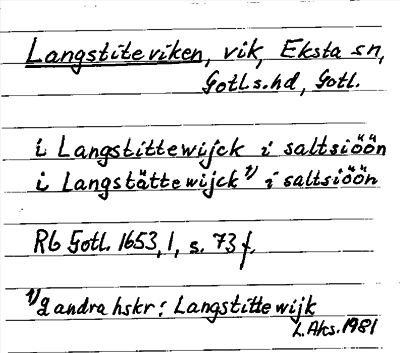 Langstiteviken, vik, Eksta sn,
Gotl.s.hd, Gotl.
i Langstittewijck i saltsiöön
i Langstättewijck¹⁾ i saltsiöön
Rb Gotl. 1653, 1, s. 73 f.
¹⁾2 andra hskr: Langstittewijk
L.Aks. 1981